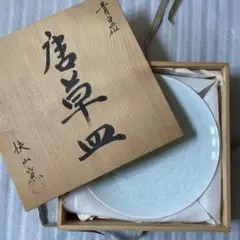 青白磁
唐草皿
快山窯